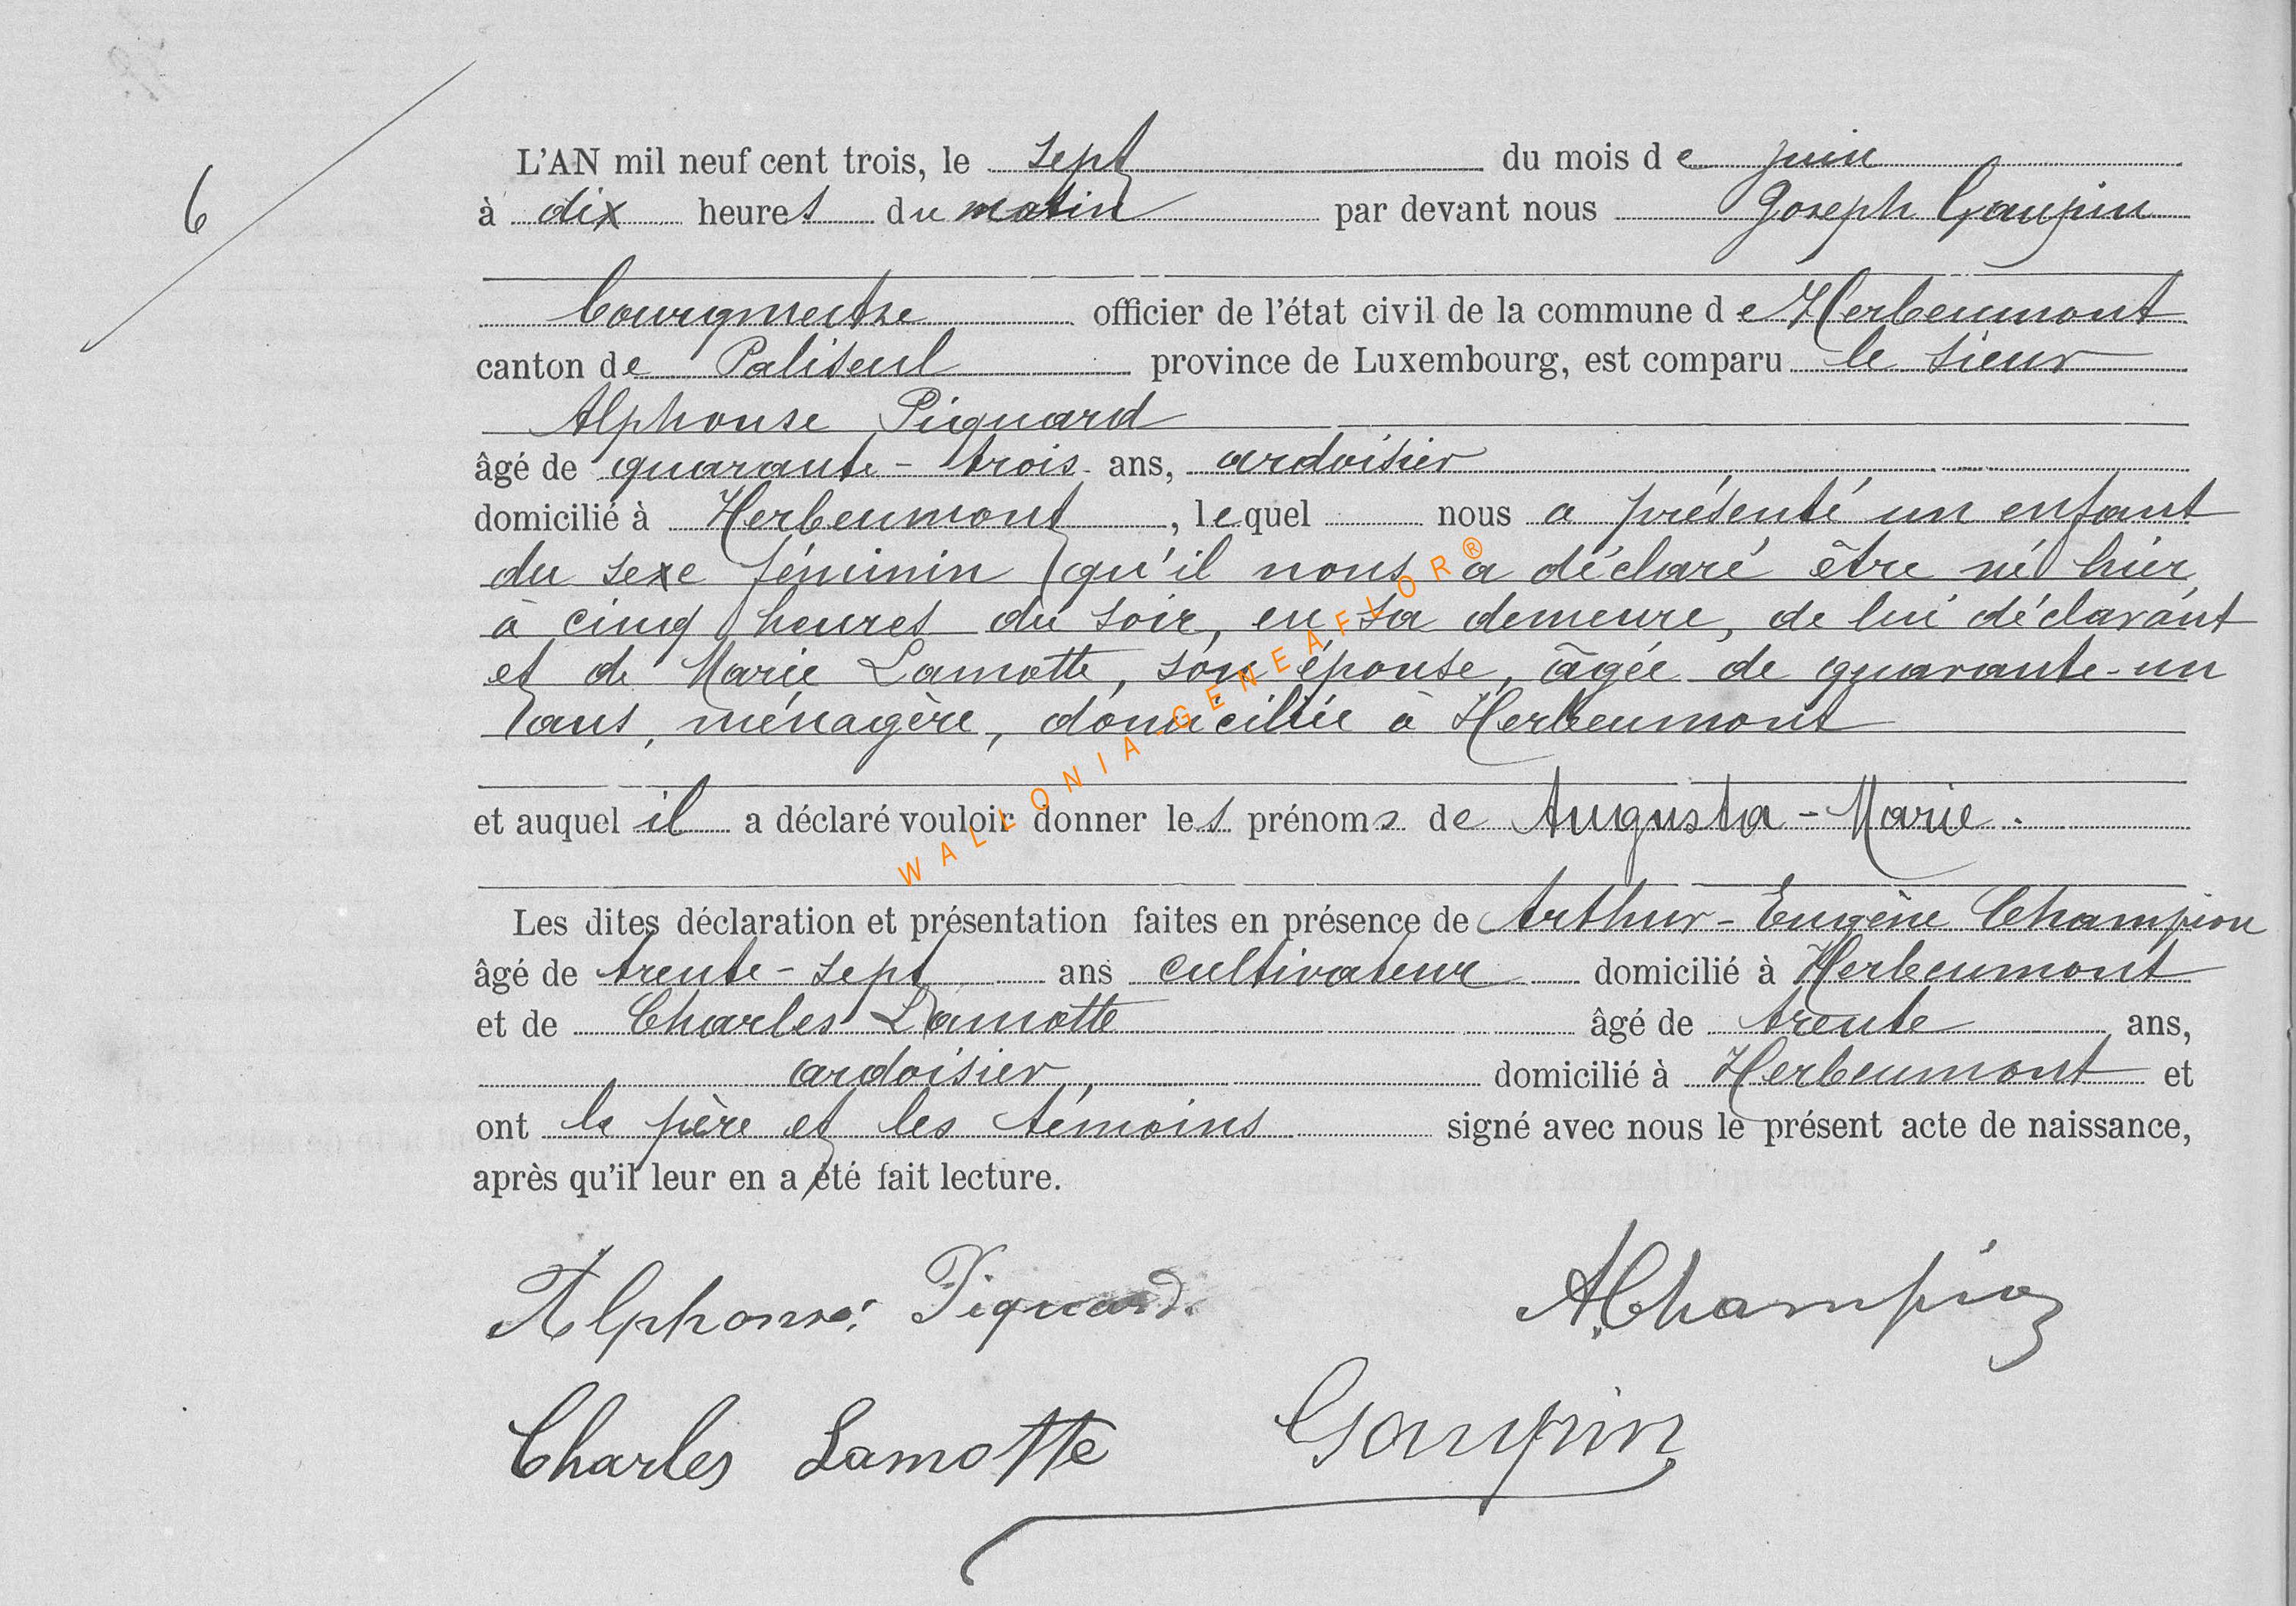 6
L'AN mil neuf cent trois, le sept du mois de juin
à dix heures du matin par devant nous Joseph Gaupin
bourgmestre officier de l'état civil de la commune de Herbeumont
canton de Paliseul province de Luxembourg, est comparu le sieur
Alphonse Piquard
âgé de quarante-trois ans, ardoisier
domicilié à Herbeumont, lequel nous a présenté un enfant
du sexe féminin qu'il nous a déclaré être né hier
à cinq heures du soir, en sa demeure, de lui déclarant
et de Marie Lamotte, son épouse, âgée de quarante-un
ans, ménagère, domiciliée à Herbeumont
et auquel il a déclaré vouloir donner les prénoms de Augusta-Marie.
Les dites déclaration et présentation faites en présence de Arthur-Eugène Champion
âgé de trente-sept ans cultivateur domicilié à Herbeumont
et de Charles Lamotte âgé de trente ans,
ardoisier, domicilié à Herbeumont et
ont le père et les témoins signé avec nous le présent acte de naissance,
après qu'il leur en a été fait lecture.
Alphonse Piquard. A. Champion
Charles Lamotte Gaupin
WALLONIA-GENEAFLOR®